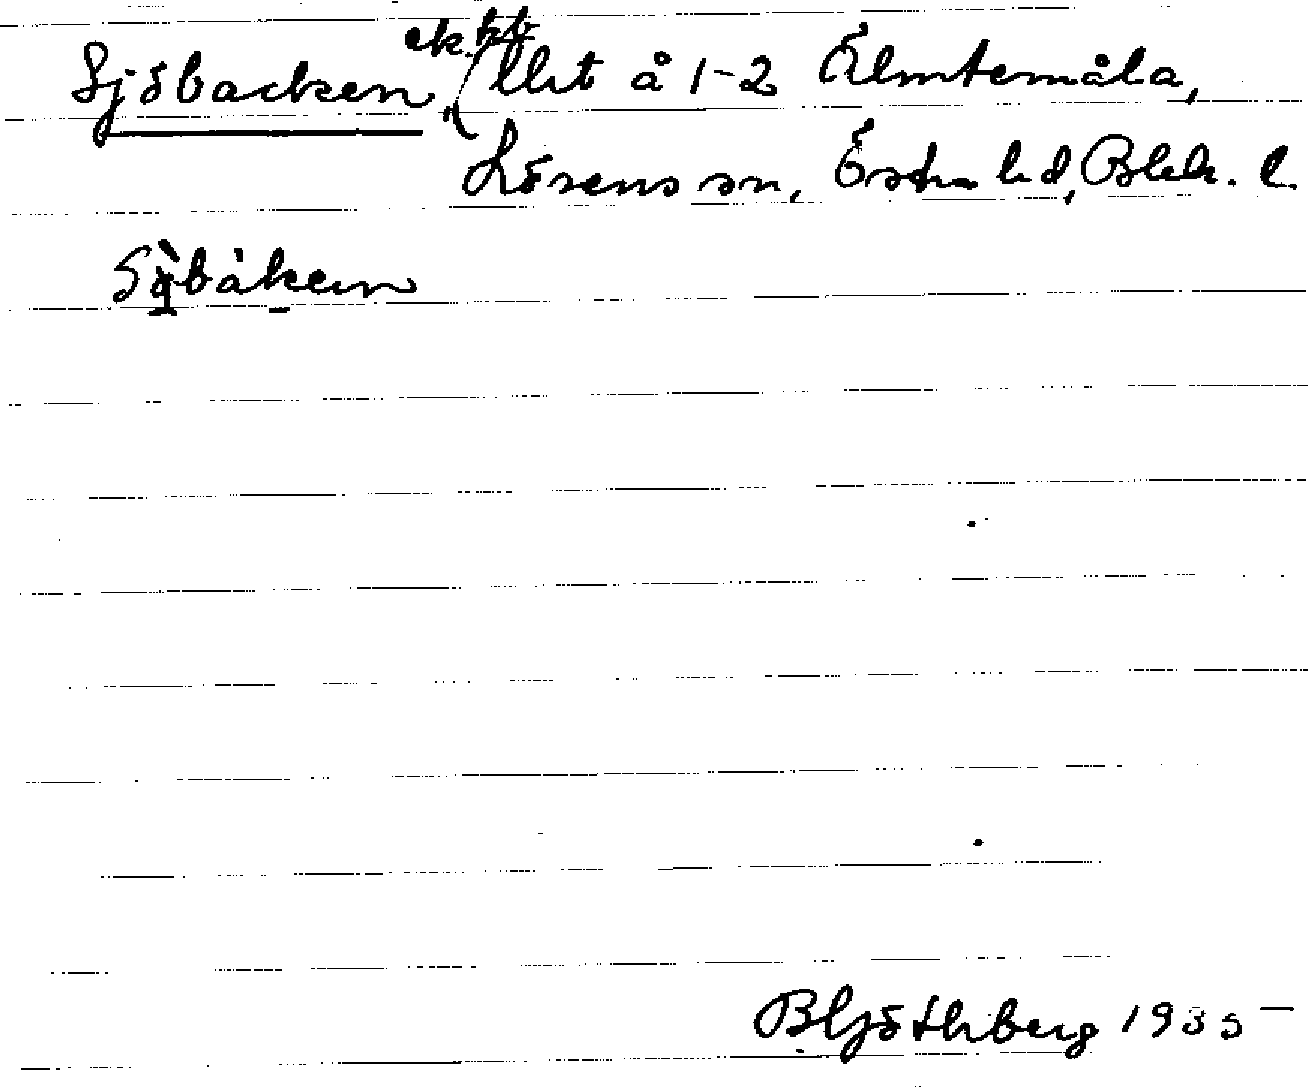 Sjöbacken, ek. kb (lht å 1-2 Älmtemåla,
Lösens sn, Östra hd, Blek. l.
Sö̀båken
B Ljöthberg 1935